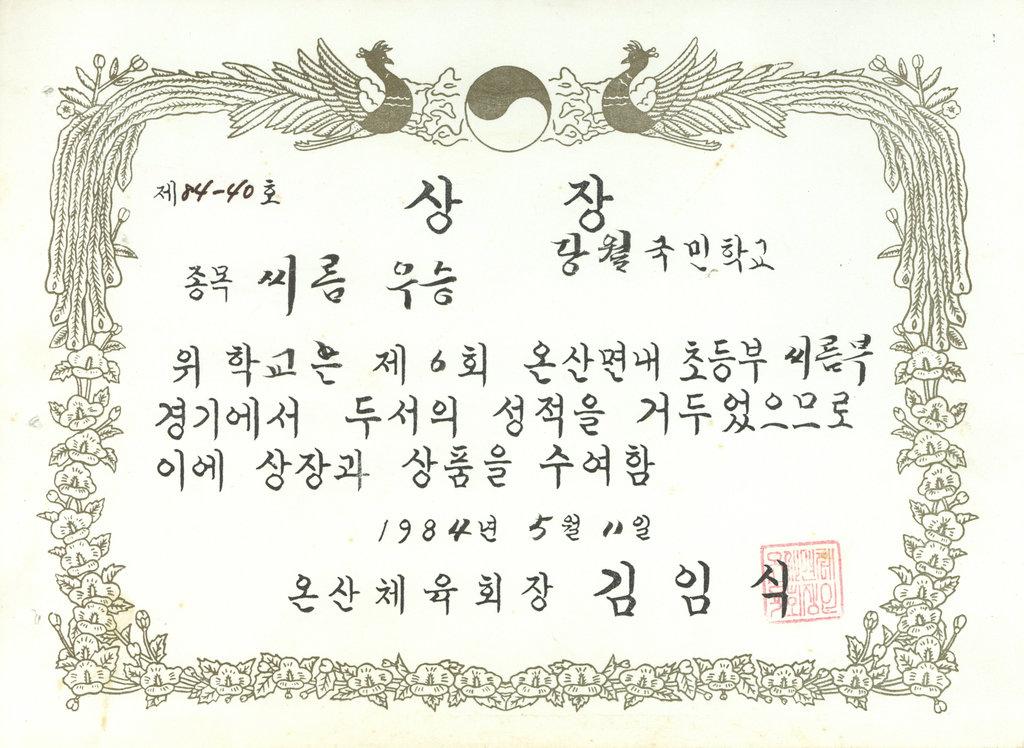 제84-40호
상 장
당월국민학교
종목 씨름 우승
위 학교는 제6회 온산면내 초등부 씨름부
경기에서 두서의 성적을 거두었으므로
이에 상장과 상품을 수여함
1984년 5월 11일
온산체육회장 김임식